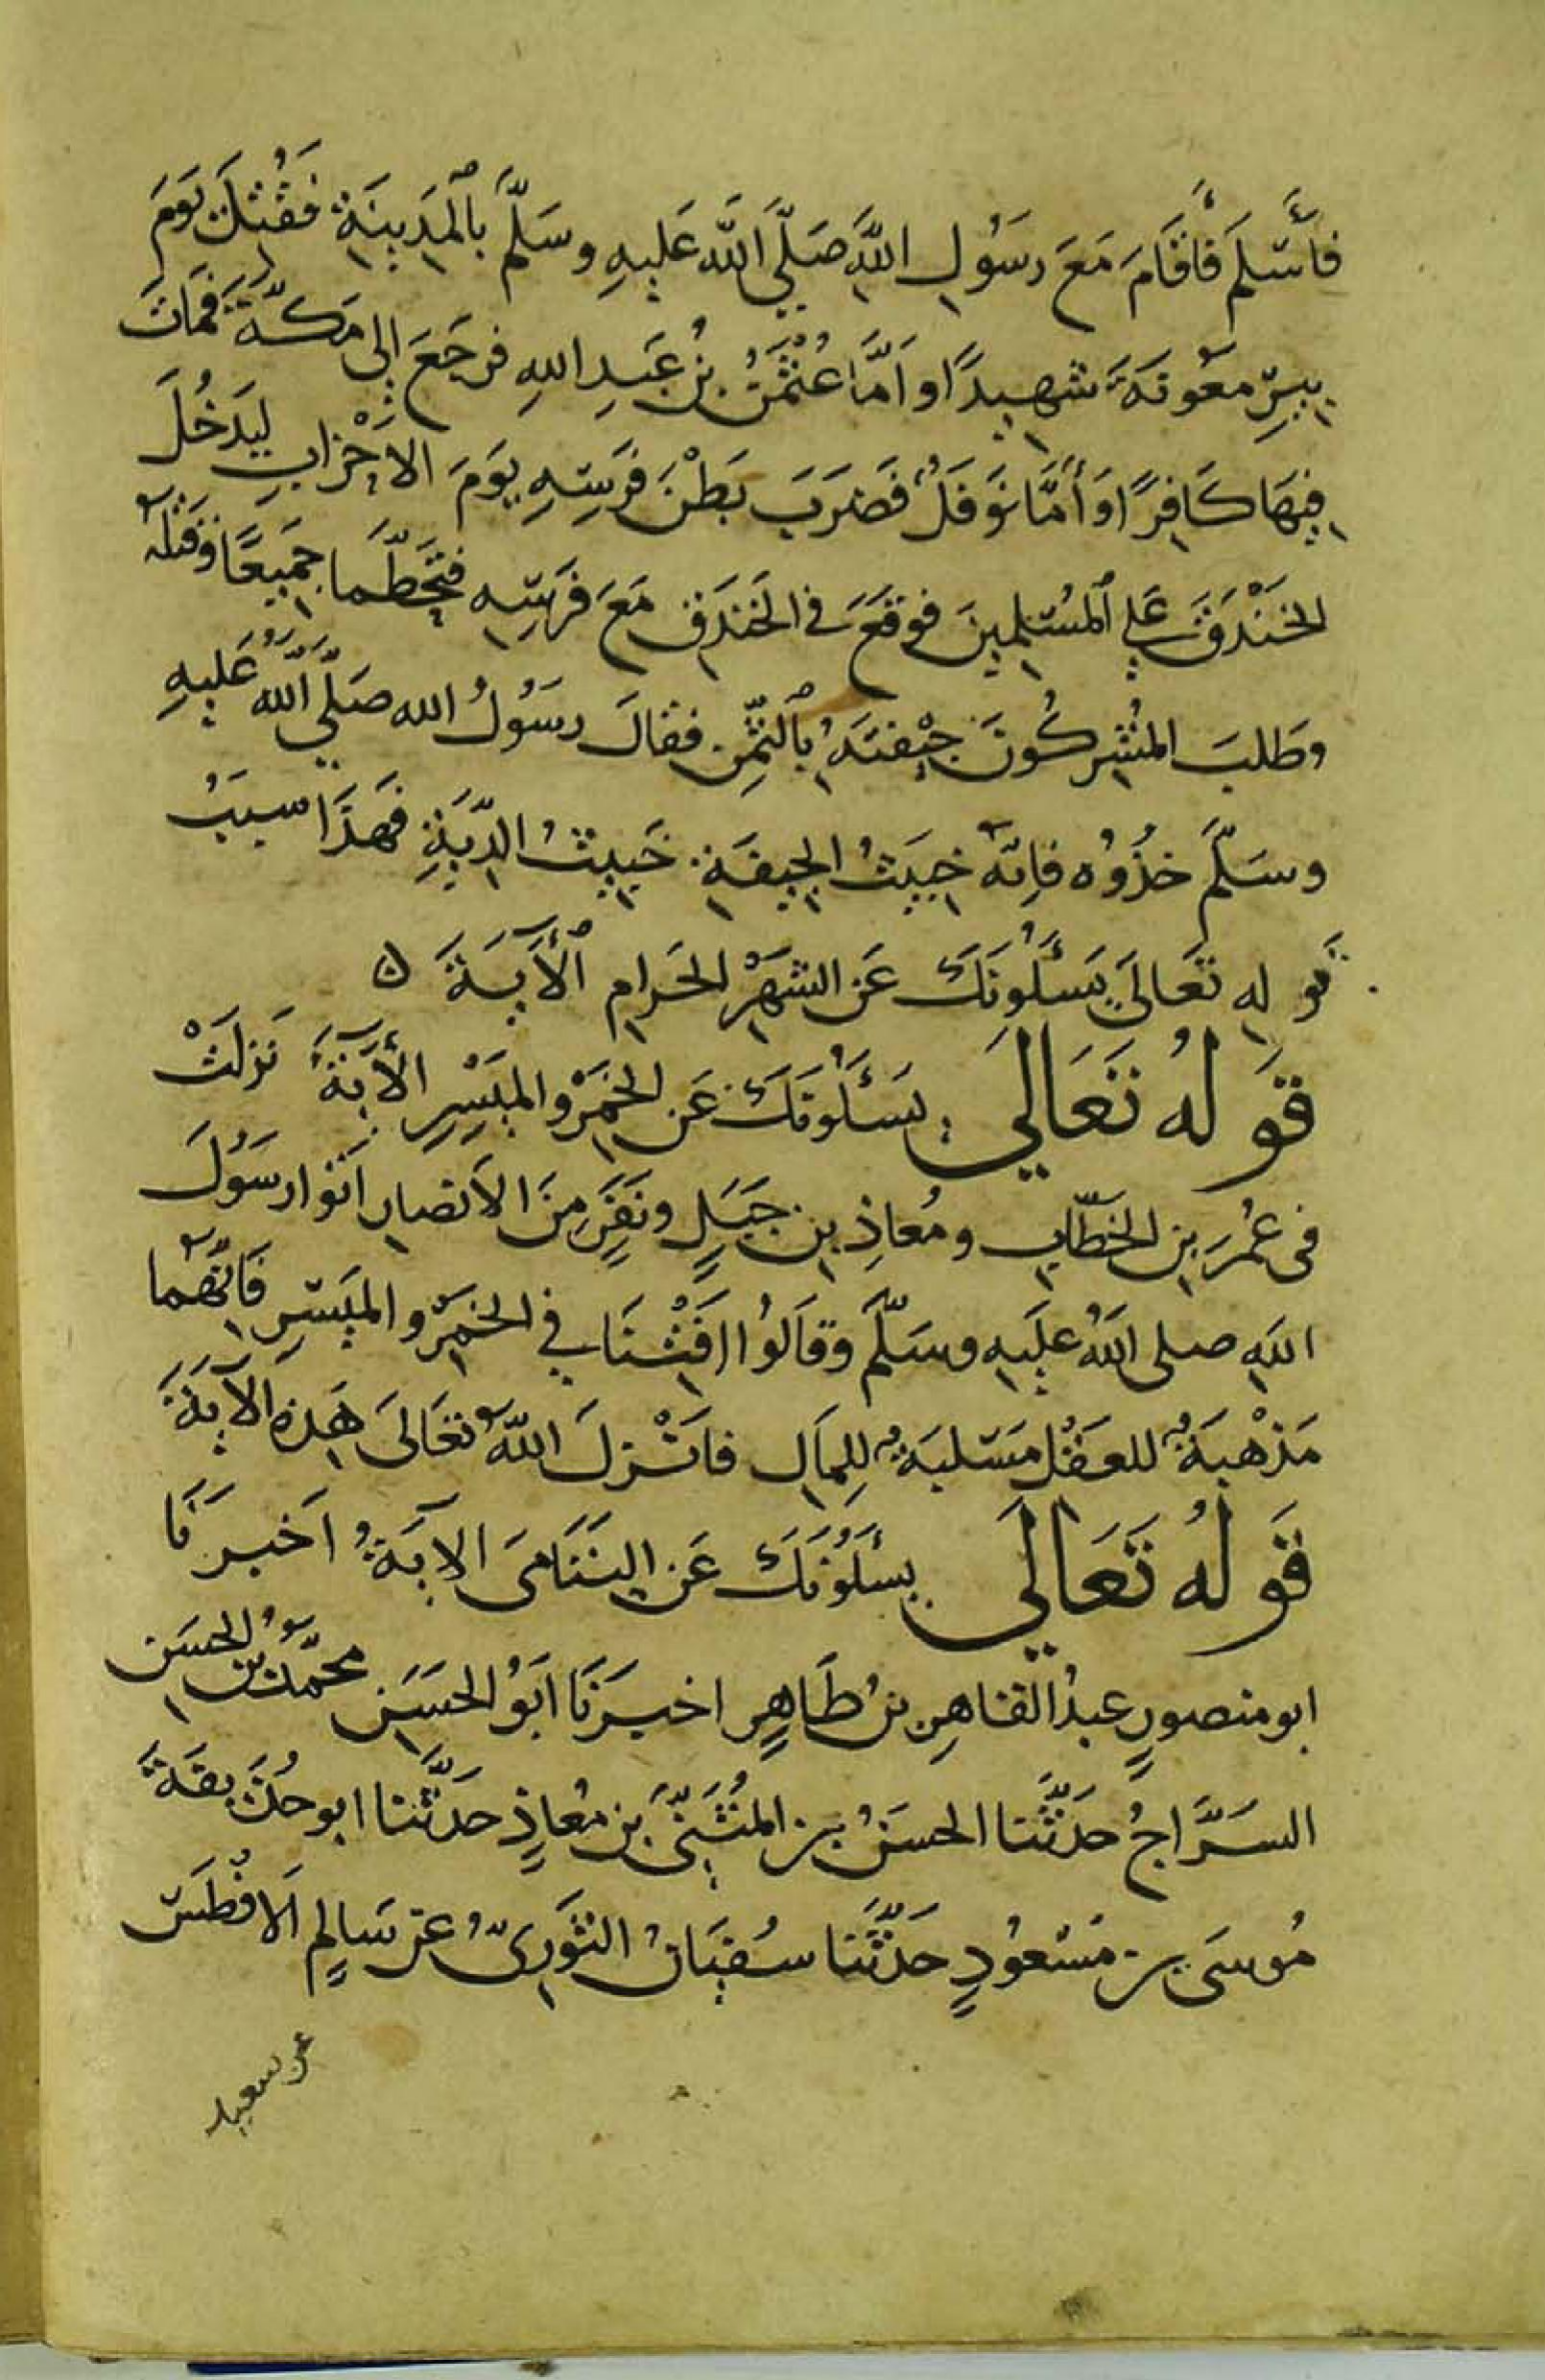 فَأَسْلَمَ فَأَقَامَ مَعَ رَسُولِ اللَّهِ صَلَّي اللَّه عَلَيهِ وسَلَّمَ بِالْمَدِينَةِ فَقُتِلَ يَوَمَ
بِيرِ مَعُونَةَ شهِيدًا واَمَّا عُثْمَنُ بنُ عَبدِ اللهِ فرجَعَ إلى مَكَّةَ فَمَاتَ
فِيهَا كَافِرًا وَأَمَّا نَوفَلُ فَضَرَبَ بَطْنَ فَرَسِهِ يوَمَ الاَحْزابِ لِيَدخُلَ
الخَنْدَقَ عَلي المُسْلِمِينَ فوقَعَ في الخَندَقِ مَعَ فَرَسِهِ فتَحَطَّما جَمِيعًا وقتلَهُ
وطَلبَ المُشْرِكُونَ جِيْفتَهُ بِالثَّمِنِ فقالَ رسَوُلُ الله صَلَّي اللَّهُ عَليهِ
وسَلَّمَ خذُوُه فاِنّهُ خبِيَثُ الجِيفَةِ خَبِيثُ الدِّيَةِ فَهذَا سببُ
قَولِهِ تَعَالَي يَسَئَلُونَكَ عَن الشهَرْ الحَرامِ الْأَيَةَ ه
قَولُهُ تَعَاليَ يَسَئَلُونَكَ عَن الخمَرْ والمَيَسِرِ الأَيَةَ نَزلَتْ
فى عُمَرَ بنِ الخطَّابِ ومُعاذِ بنِ جَبَلٍ ونَفَرٍ مِنَ الاَنصارِ اَتوا رسَوُلَ
اللهِ صلى اللهُ عليَهِ وسَلَّمَ وقَالوُا افَتْنَا في الخَمْرِ والميَسِرِ فَانّهُما
مَذْهبَةٌ للعَقْلِ مَسَلبَةٌ للِمالِ فاَنْزلَ اللهُ تعَالىَ هَذهِ الآيَةَ
قَولُهُ تَعَاليَ يسئَلُونَكَ عَن اليَتَامىَ الايَةُ اَخبرَنَا
ابو منصورٍ عبدُ القاهِرِ بنُ طَاهِرٍ اخبرَنَا ابَوُ الحَسَنِ محمّدُ بنُ الحسَنِ
السَرَّاجُ حدَثَّنا الحسَنُ بنُ المُثَنىَّ بنِ مُعاذٍ حدَثَّنا ابو حُذَيفَةَ
مُوسىَ بنُ مَسْعُودٍ حَدَثَّنَا سُفيَانُ الثوَرِىُّ عن سَالِمٍ الاَفْطَسِ
عن سعيد